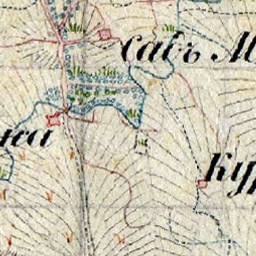 Савъ М
на
Кур